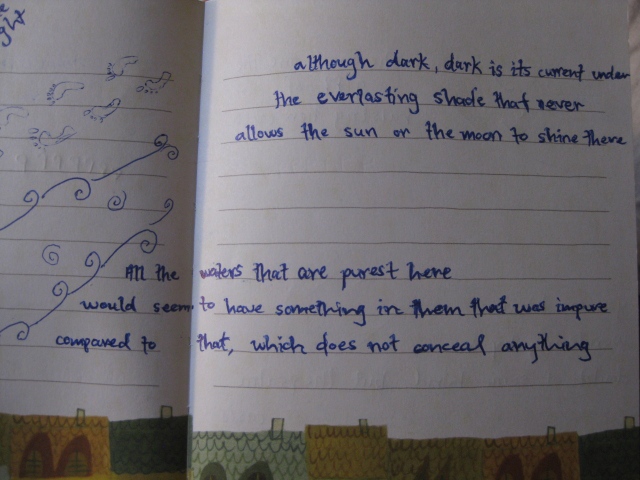 although dark, dark is its current under
the everlasting shade that never
allows the sun or the moon to shine there
All the waters that are purest here
would seem to have something in them that was impure
compared to that, which does not conceal anything